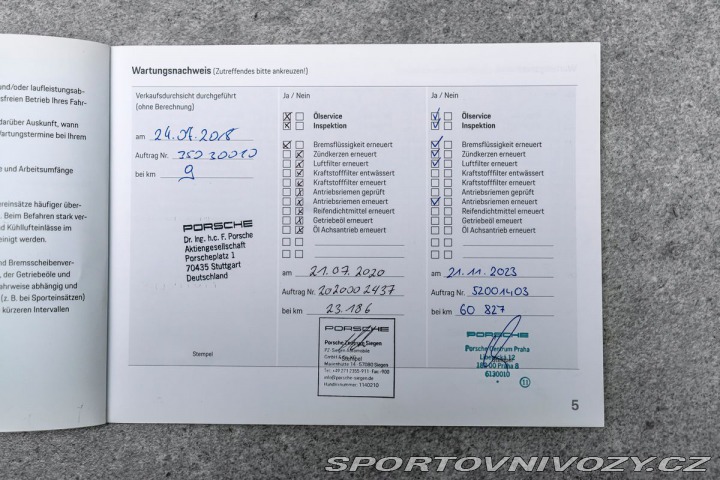 und/oder laufleistungsab-
sfreien Betrieb Ihres Fahr-
darüber Auskunft, wann
Wartungstermine bei Ihrem
e und Arbeitsumfänge
ereinsätze häufiger über-
. Beim Befahren stark ver-
d Kühllufteinlässe im
einigt werden.
nd Bremsscheibenver-
, der Getriebeöle und
ahrweise abhängig und
(z. B. bei Sporteinsätzen)
kürzeren Intervallen
Wartungsnachweis (Zutreffendes bitte ankreuzen!)
Verkaufsdurchsicht durchgeführt
(ohne Berechnung)
am 24.07.2018
Auftrag Nr. 35030010
bei km 9
PORSCHE
Dr. Ing. h.c. F. Porsche
Aktiengesellschaft
Porscheplatz 1
70435 Stuttgart
Deutschland
Stempel
Ja / Nein
Ölservice
Inspektion
Bremsflüssigkeit erneuert
Zündkerzen erneuert
Luftfilter erneuert
Kraftstofffilter entwässert
Kraftstofffilter erneuert
Antriebsriemen geprüft
Antriebsriemen erneuert
Reifendichtmittel erneuert
Getriebeöl erneuert
Öl Achsantrieb erneuert
am 21.07.2020
Auftrag Nr. 202000 2437
bei km 23.186
PORSCHE
Porsche Zentrum Siegen
Stempel
57080 Siegen
info@porsche-siegen.de
Ja / Nein
Ölservice
Inspektion
Bremsflüssigkeit erneuert
Zündkerzen erneuert
Luftfilter erneuert
Kraftstofffilter entwässert
Kraftstofffilter erneuert
Antriebsriemen geprüft
Antriebsriemen erneuert
Reifendichtmittel erneuert
Getriebeöl erneuert
Öl Achsantrieb erneuert
am 21.11.2023
Auftrag Nr. 52001403
bei km 60 827
PORSCHE
Porsche Centrum Praha
Praha 8
6130010
11
5
SPORTOVNIVOZY.CZ